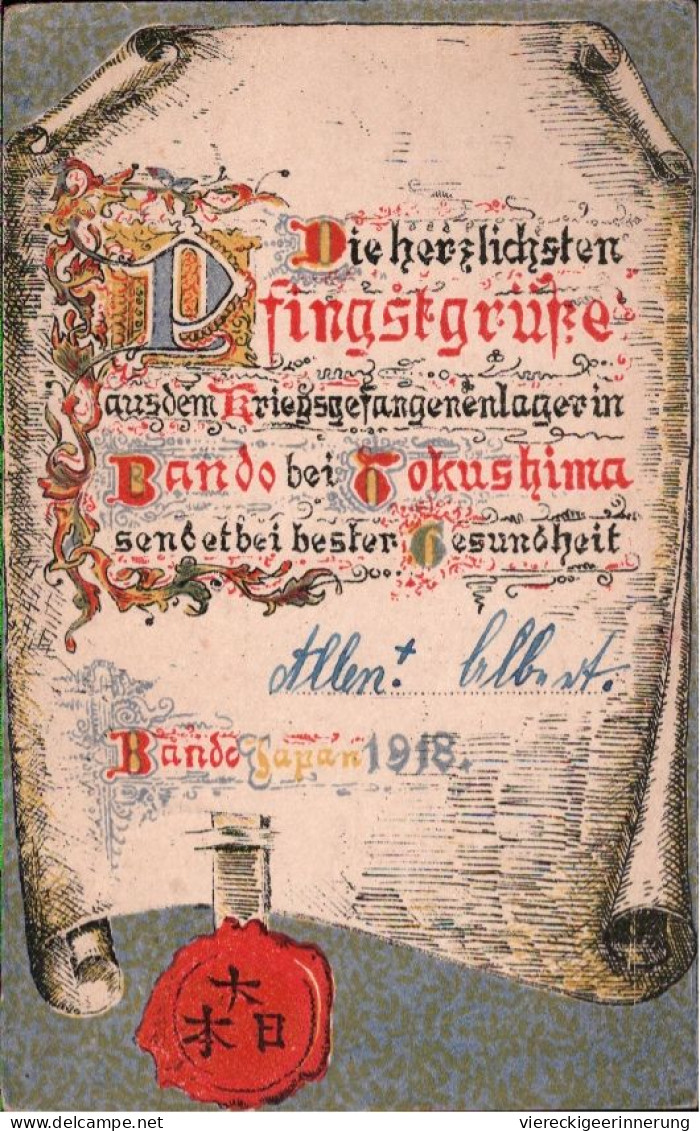 Die herzlichsten
Pfingstgrüße
aus dem Kriegsgefangenenlager in
Bando bei Tokushima
sendet bei bester Gesundheit
Albert.
Bando Japan 1918.
大
本 日
delcampe.net
viereckigeerinnerung